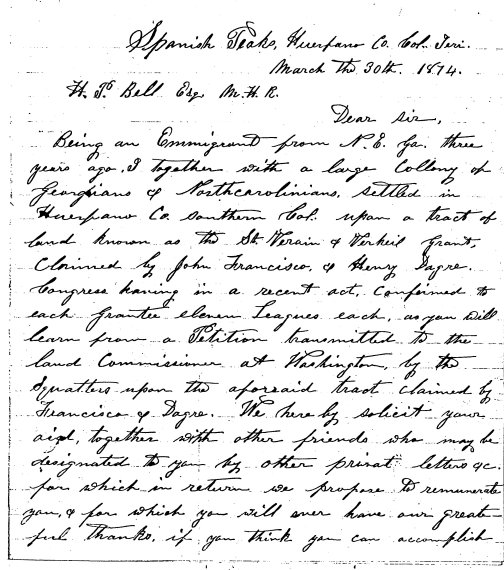 Spanish Peaks, Huerfano Co. Col. Teri.
March the 30th. 1874.
H. P. Bell Esq. M.H.R.
Dear sir,
Being an Emmigrant from N.E. Ga. three
years ago, I together with a large Collony of
Georgians & Northcarolinians, settled in
Huerfano Co. southern Col. upon a tract of
land known as the St. Verain & Verheil Grant,
Claimed by John Francisco, & Henry Dagre.
Congress having in a recent act, Confirmed to
each Grantee eleven Leagues each, as you will
learn from a Petition transmitted to the
land Commissioner at Washington, by the
squatters upon the aforesaid tract claimed by
Francisco & Dagre. We here by solicit your
aid, together with other friends who may be
designated to you by other privat letters &c
for which in return we propose to remunerate
you, & for which you will ever have our great-
ful thanks, if you think you can accomplish